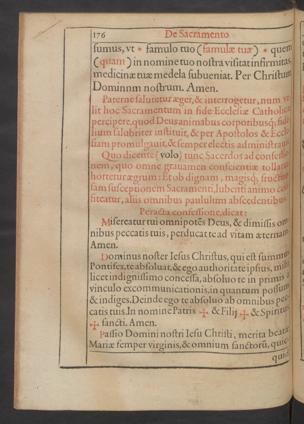 176 De Sacramento
sumus, vt * famulo tuo (famulæ tuæ) * quem
(quam) in nomine tuo nostra visitat infirmitas,
medicinæ tuæ medela subueniat. Per Christum
Dominum nostrum. Amen.
Paterne salutetur æger, & interrogetur, num ve
lit hoc Sacramentum in fide Ecclesiæ Catholicæ
percipere, quod Deus animabus corporibusq́; fide
lium salubriter instituit, & per Apostolos & Eccle
siam promulgauit, & semper electis administrauit.
Quo dicente (volo) tunc Sacerdos ad confessio
nem, quo omne grauamen conscientiæ tollatur
hortetur ægrum: Et ob dignam, magisq́;
sam susceptionem Sacramenti, lubenti animo con
fiteatur, alijs omnibus paululum abscedentibus.
Peracta confessione, dicat:
Misereatur tui omnipotēs Deus, & dimissis om
nibus peccatis tuis, perducat te ad vitam æternam.
Amen.
Dominus noster Iesus Christus, qui est summus
Pontifex, te absoluat, & ego authoritate ipsius, mihi
licet indignissimo concessa, absoluo te in primis à
vinculo excommunicationis, in quantum possum
& indiges. Deinde ego te absoluo ab omnibus pec-
catis tuis. In nomine Patris ✢ & Filij ✢ & Spiritus
✢ sancti. Amen.
Passio Domini nostri Iesu Christi, merita beatæ
Mariæ semper virginis, & omnium sanctorū,